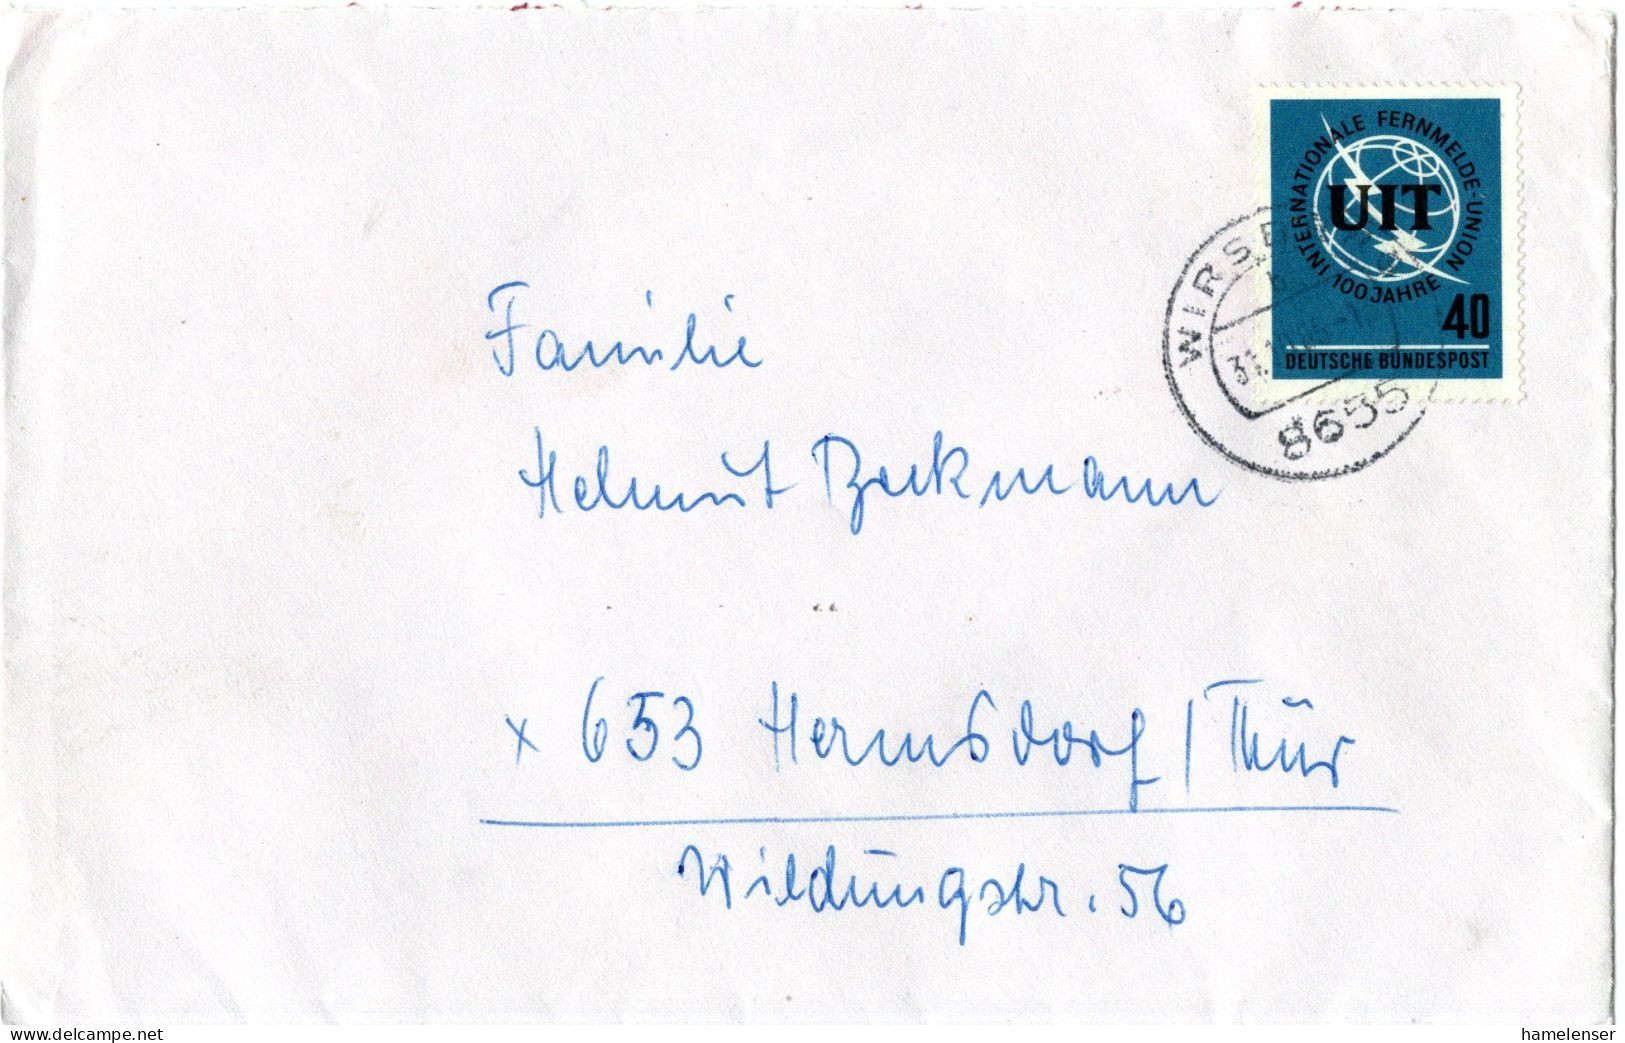 INTERNATIONALE FERNMELDE-UNION
100 JAHRE
UIT
40
DEUTSCHE BUNDESPOST
b
8655
Familie
Helmut Beckmann
x 653 Hermsdorf / Thür
Wildungstr. 56
www.delcampe.net
hamelenser